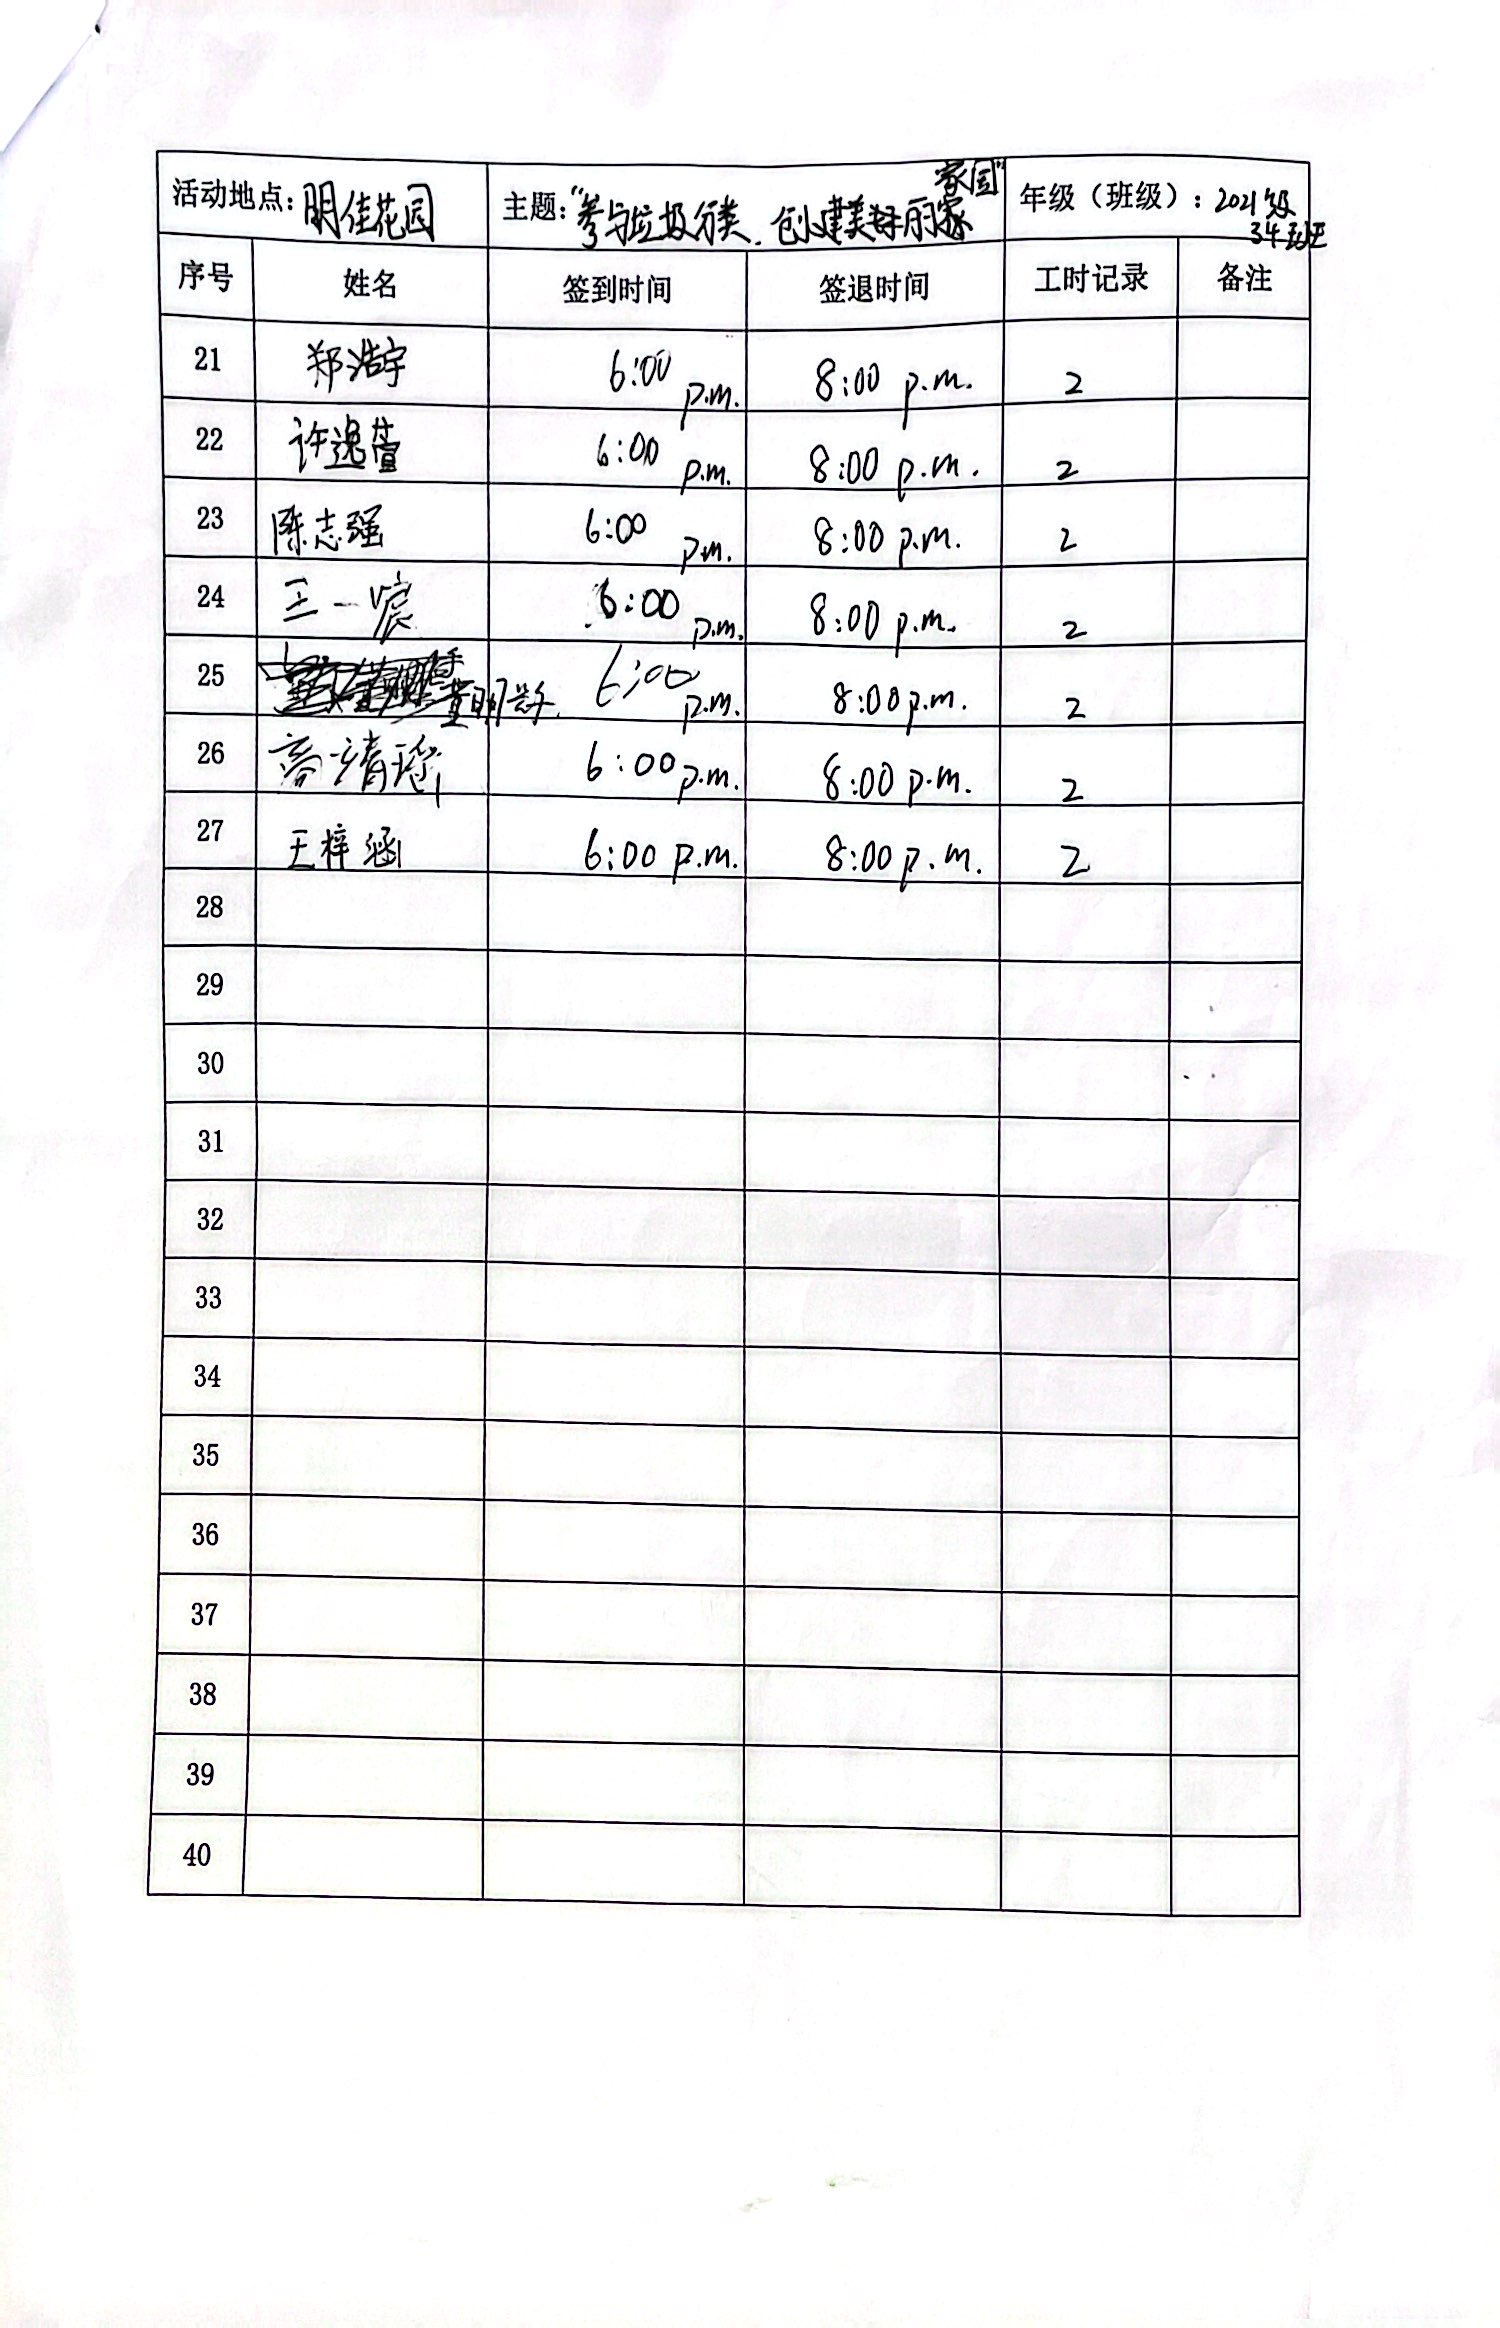 活动地点: 明佳花园 主题: "参与垃圾分类、创建美好丽家家园" 年级（班级）: 2021级34班
序号 姓名 签到时间 签退时间 工时记录 备注
21 郑浩宇 6:00 p.m. 8:00 p.m. 2
22 许逸萱 6:00 p.m. 8:00 p.m. 2
23 陈志强 6:00 p.m. 8:00 p.m. 2
24 王一宸 6:00 p.m. 8:00 p.m. 2
25 6:00 p.m. 8:00 p.m. 2
26 6:00 p.m. 8:00 p.m. 2
27 王梓涵 6:00 p.m. 8:00 p.m. 2
28
29
30
31
32
33
34
35
36
37
38
39
40